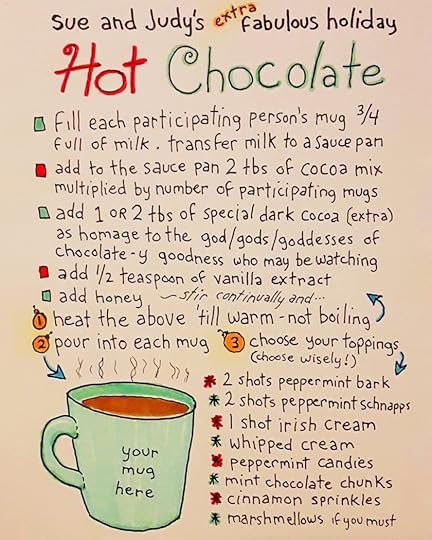 Sue and Judy's extra fabulous holiday
Hot Chocolate
fill each participating person's mug 3/4
full of milk. transfer milk to a sauce pan
add to the sauce pan 2 tbs of cocoa mix
multiplied by number of participating mugs
add 1 OR 2 tbs of special dark cocoa (extra)
as homage to the god/gods/goddesses of
chocolate-y goodness who may be watching
add 1/2 teaspoon of vanilla extract
add honey ~ stir continually and...
1 heat the above 'till warm - not boiling
2 pour into each mug
3 choose your toppings
(choose wisely!)
2 shots peppermint bark
2 shots peppermint schnapps
1 shot irish cream
whipped cream
peppermint candies
mint chocolate chunks
cinnamon sprinkles
marshmellows if you must
your
mug
here